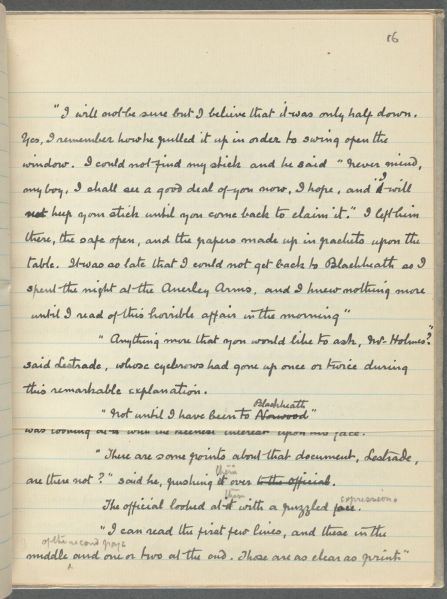 16
"I will not be sure but I believe that it was only half down.
Yes, I remember how he pulled it up in order to swing open the
window. I could not find my stick and he said "Never mind,
my boy, I shall see a good deal of you now, I hope, and I will
keep your stick until you come back to claim it." I left him
there, the safe open, and the papers made up in packets upon the
table. It was so late that I could not get back to Blackheath so I
spent the night at the Anerley Arms, and I knew nothing more
until I read of this horrible affair in the morning"
"Anything more that you would like to ask, Mr Holmes?"
said Lestrade, whose eyebrows had gone up once or twice during
this remarkable explanation.
Blackheath
"Not until I have been to Norwood"
was looking at it with the keenest interest upon his face.
"There are some points about that document, Lestrade,
them
are there not?" said he, pushing it over to the official.
them expression.
The official looked at it with a puzzled face.
"I can read the first few lines, and these in the
of the second page
middle and one or two at the end. Those are as clear as print"